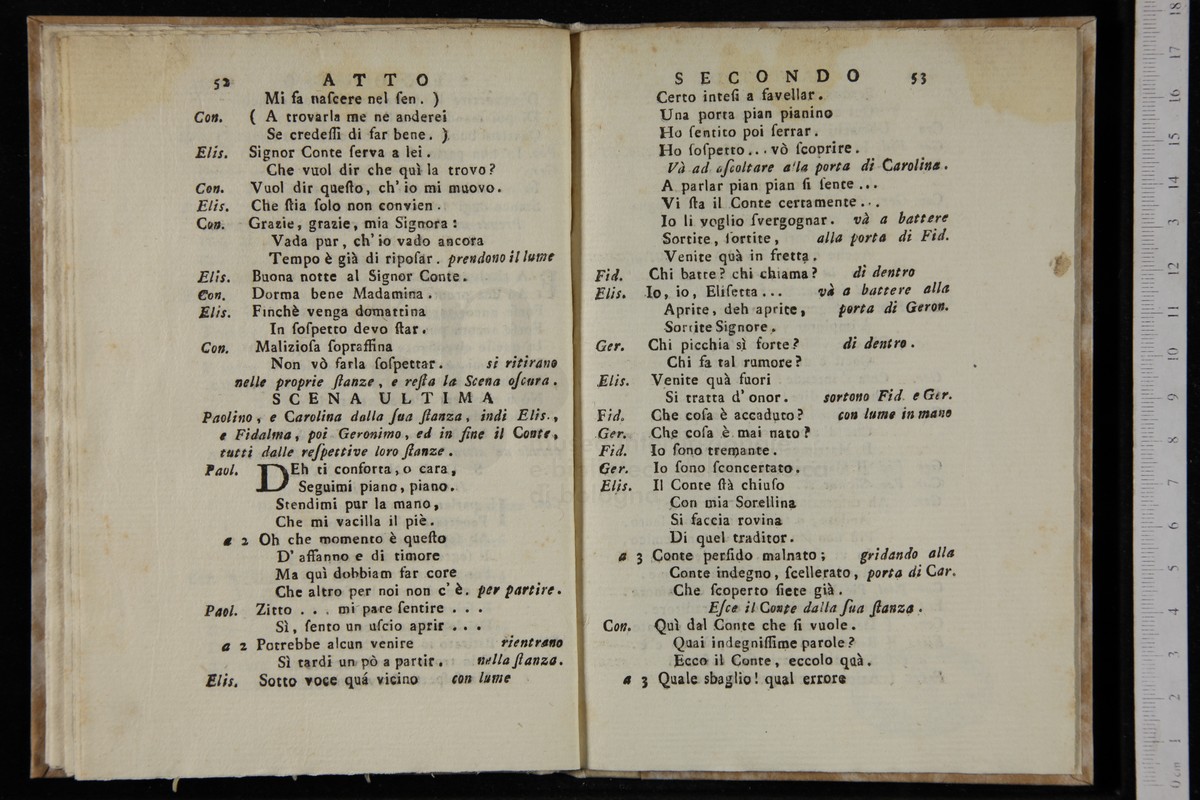 52 ATTO
Mi fa naſcere nel ſen. )
Con. ( A trovarla me ne anderei
Se credeſſi di far bene. )
Elis. Signor Conte ſerva a lei.
Che vuol dir che quì la trovo?
Con. Vuol dir queſto, ch' io mi muovo.
Elis. Che ſtia ſolo non convien.
Con. Grazie, grazie, mia Signora:
Vada pur, ch' io vado ancora
Tempo è già di ripoſar. prendono il lume
Elis. Buona notte al Signor Conte.
Con. Dorma bene Madamina.
Elis. Finchè venga domattina
In ſoſpetto devo ſtar.
Con. Malizioſa ſopraffina
Non vò farla ſoſpettar. si ritirano
nelle proprie ſtanze, e reſta la Scena oſcura.
SCENA ULTIMA
Paolino, e Carolina dalla ſua ſtanza, indi Elis.,
e Fidalma, poi Geronimo, ed in fine il Conte,
tutti dalle reſpettive loro ſtanze.
Paol. DEh ti conforta, o cara,
Seguimi piano, piano.
Stendimi pur la mano,
Che mi vacilla il piè.
a 2 Oh che momento è queſto
D' affanno e di timore
Ma quì dobbiam far core
Che altro per noi non c' è. per partire.
Paol. Zitto . . . mi pare ſentire . . .
Sì, ſento un uſcio aprir . . .
a 2 Potrebbe alcun venire rientrano
Sì tardi un pò a partir. nella ſtanza.
Elis. Sotto voce quá vicino con lume
SECONDO 53
Certo inteſi a favellar.
Una porta pian pianino
Ho ſentito poi ſerrar.
Ho ſoſpetto... vò ſcoprire.
Và ad aſcoltare alla porta di Carolina.
A parlar pian pian ſi ſente...
Vi ſta il Conte certamente...
Io li voglio ſvergognar. và a battere
Sortite, ſortite, alla porta di Fid.
Venite quà in fretta.
Fid. Chi batte? chi chiama? di dentro
Elis. Io, io, Eliſetta... và a battere alla
Aprite, deh aprite, porta di Geron.
Sortite Signore.
Ger. Chi picchia sì forte? di dentro.
Chi fa tal rumore?
Elis. Venite quà fuori
Si tratta d' onor. sortono Fid. e Ger.
Fid. Che coſa è accaduto? con lume in mano
Ger. Che coſa è mai nato?
Fid. Io ſono tremante.
Ger. Io ſono ſconcertato.
Elis. Il Conte ſtà chiuſo
Con mia Sorellina
Si faccia rovina
Di quel traditor.
a 3 Conte perfido malnato; gridando alla
Conte indegno, ſcellerato, porta di Car.
Che ſcoperto ſiete già.
Eſce il Conte dalla ſua ſtanza.
Con. Quì dal Conte che ſi vuole.
Quai indegniſſime parole?
Ecco il Conte, eccolo quà.
a 3 Quale sbaglio! qual errore